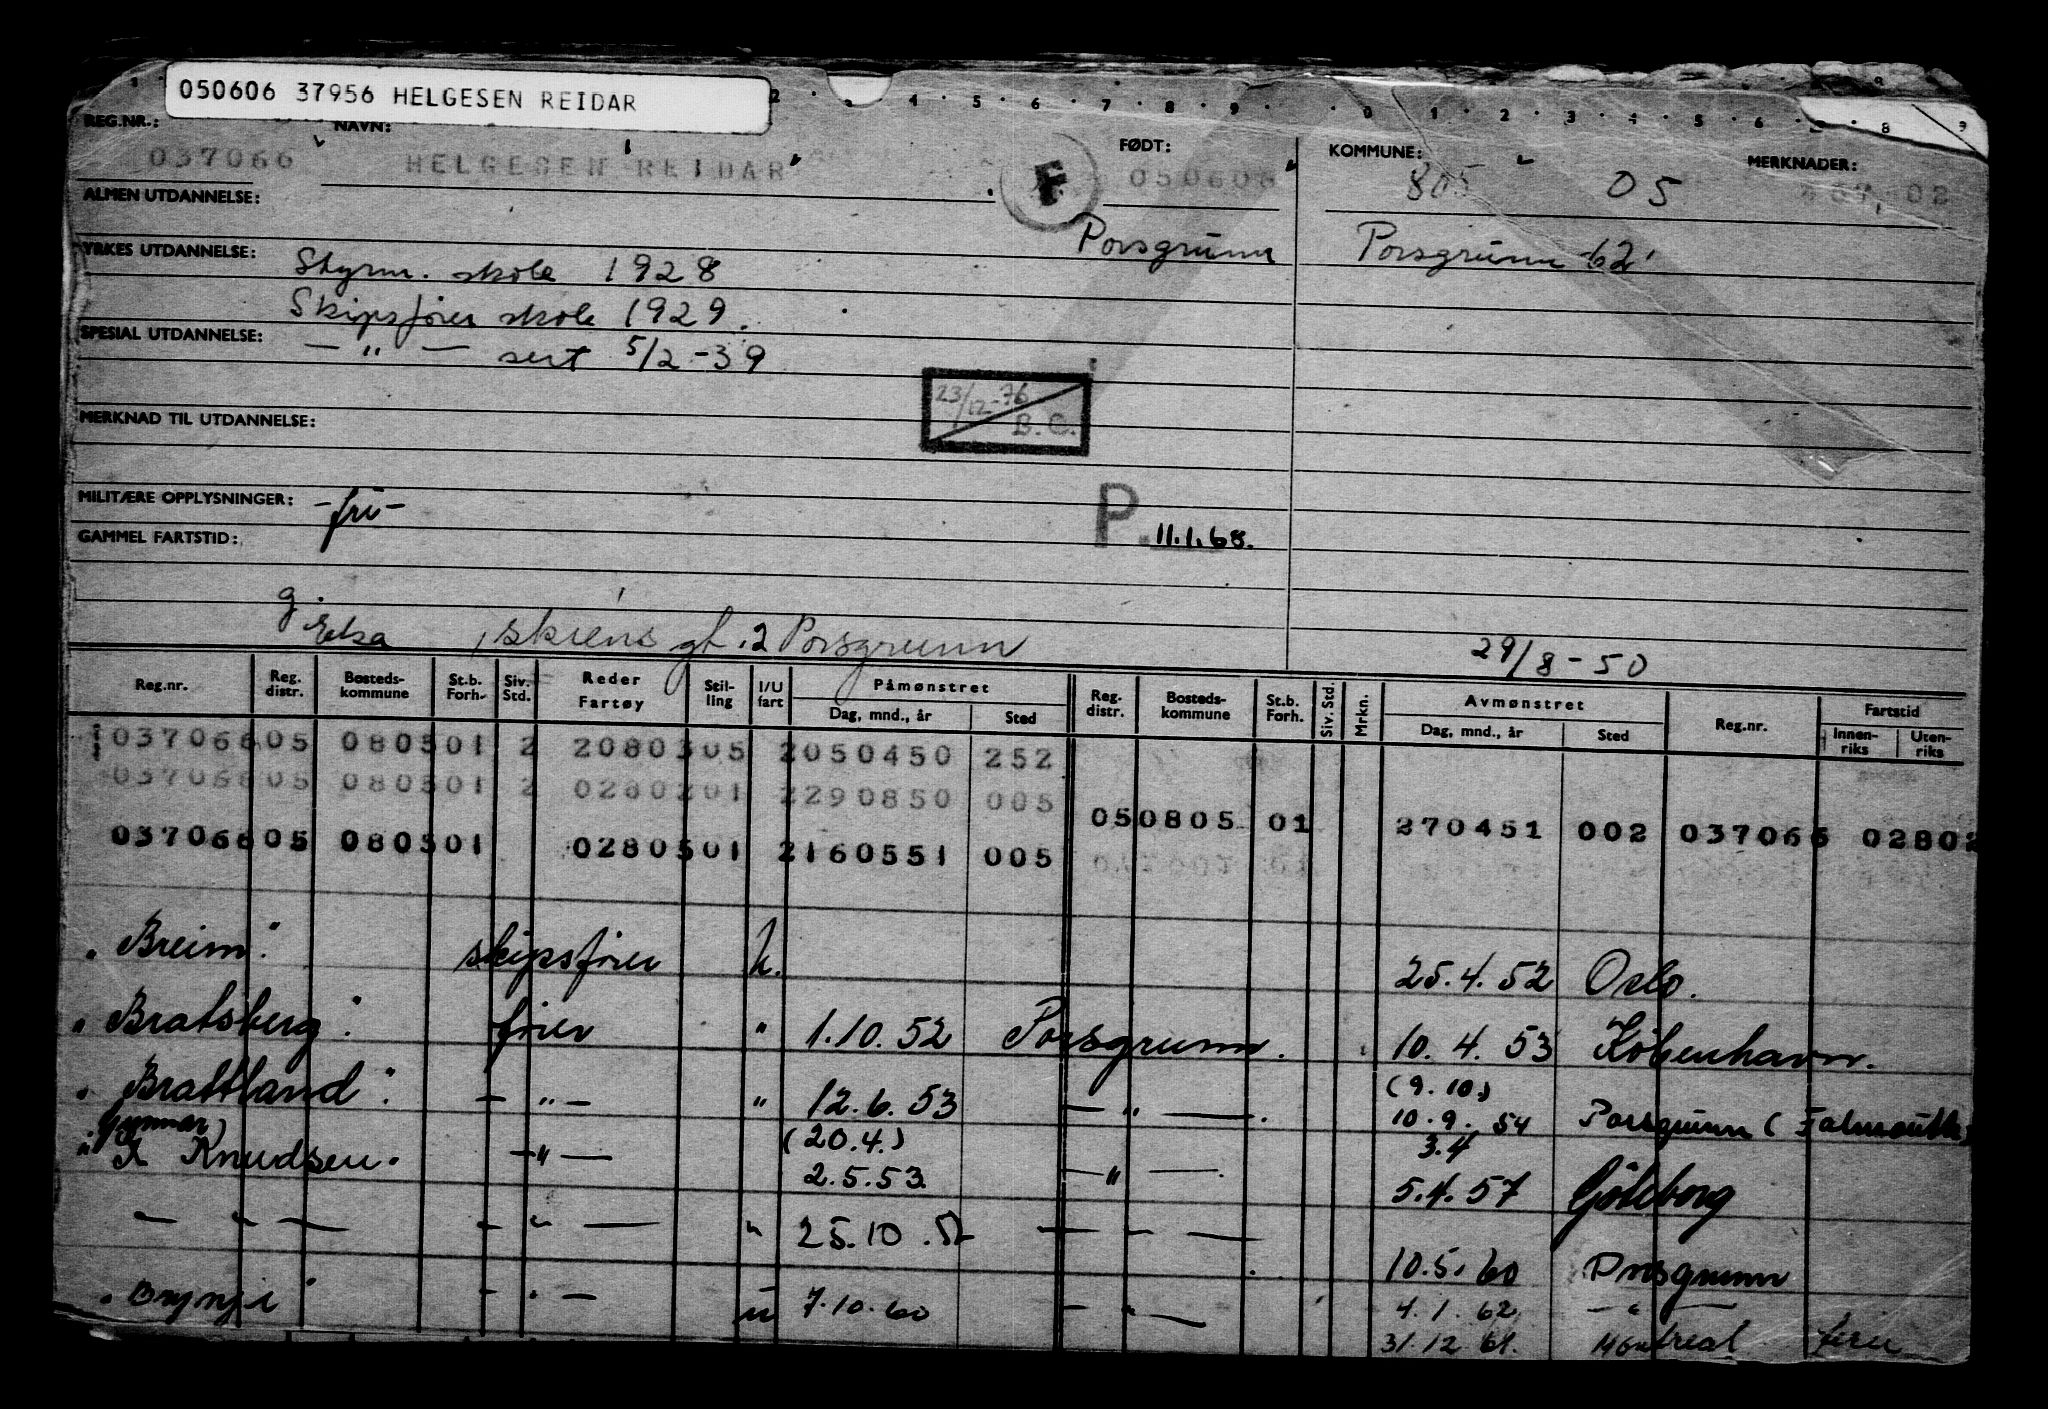 050606 37956 HELGESEN REIDAR
REG.NR.: NAVN: FØDT: KOMMUNE: MERKNADER:
037066 HELGESEN REIDAR F 050606 805 05 02
ALMEN UTDANNELSE:
Porsgrunn Porsgrunn 62
YRKES UTDANNELSE: Styrm. skole 1928
Skipsfører skole 1929.
SPESIAL UTDANNELSE: — " — sert 5/2-39
23/12-76 B.C.
MERKNAD TIL UTDANNELSE:
MILITÆRE OPPLYSNINGER: -fri-
P. 11.1.68.
GAMMEL FARTSTID:
g.
Elsa, Skiens gt. 12 Porsgrunn 29/8-50
Reg.nr. Reg. distr. Bosteds-kommune St.b. Forh. Siv. Std. Reder Fartøy Stil-ling I/U fart Påmønstret Dag, mnd., år Sted Reg. distr. Bosteds-kommune St.b. Forh. Siv. Std. Mrkn. Avmønstret Dag, mnd., år Sted Reg.nr. Fartstid Innen-riks Uten-riks
037066 05 0805 01 2 2080305 2050450 252
037066 05 0805 01 2 0280201 2290850 005
05 0805 01 270451 002 037066 02802
037066 05 0805 01 0280501 2160551 005
"Breim" skipsfører u. 25.4.52 Oslo.
"Bratsberg" fører " 1.10.52 Porsgrunn. 10.4.53 København.
"Brattland" — " — " 12.6.53 — " —. (9.10.) 10.9.54 Porsgrunn (Falmouth)
"Gunnar Knudsen. — " — (20.4.) 2.5.53 — " —. 3.4 5.4.57 Göteborg
— " — — " — " 25.10. — " — 10.5.60 Porsgrunn
"Brynje" — " — u 7.10.60 — " — 4.1.62 — " —
31.12.61. Montreal